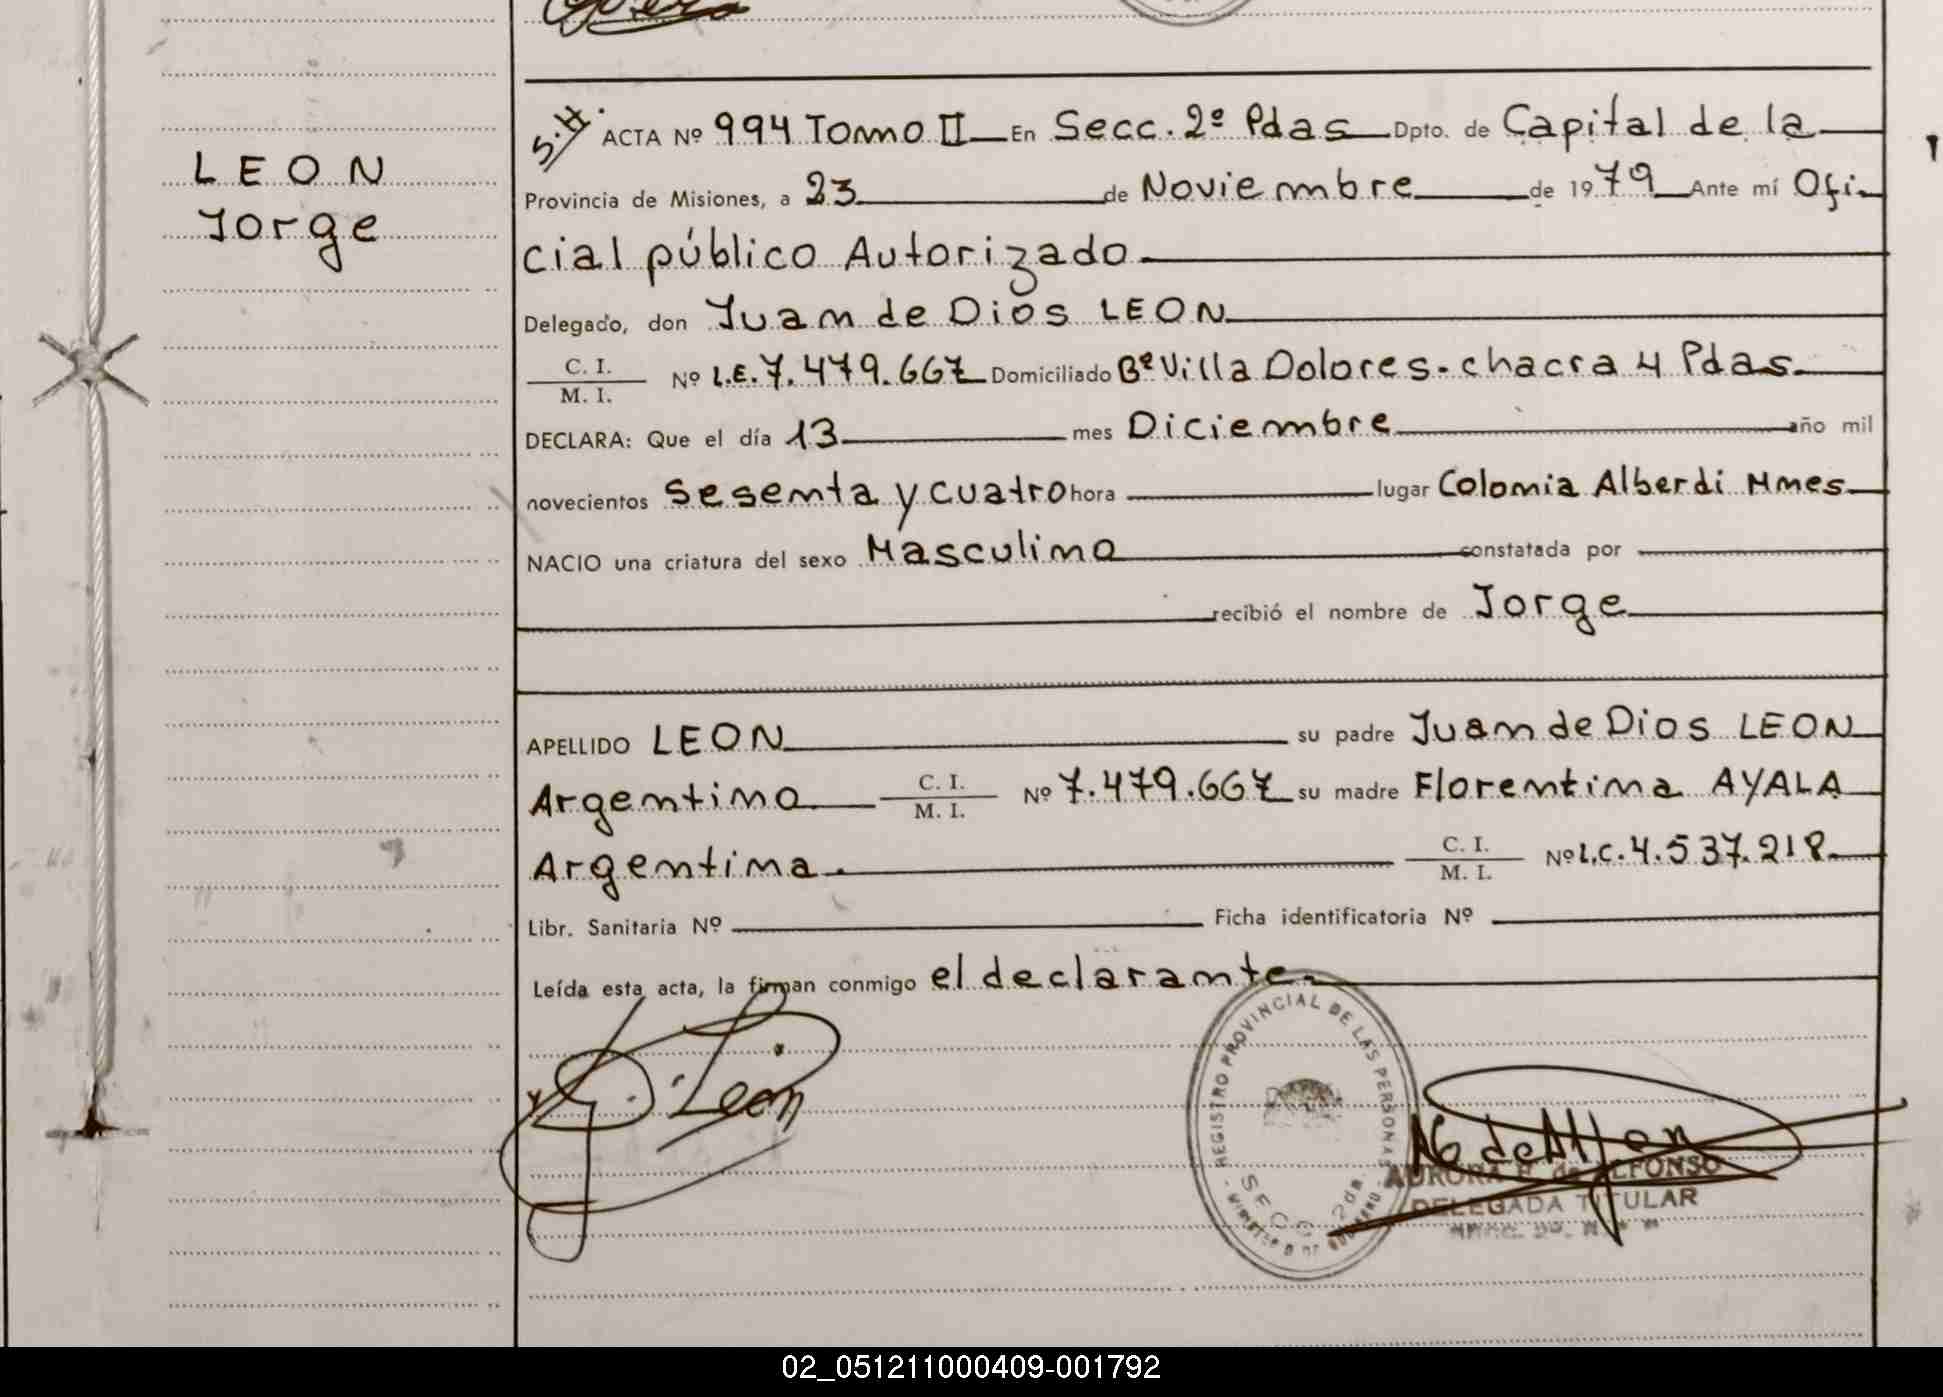 LEON
Jorge
S.H. ACTA Nº 994 Tomo II En Secc. 2º Pdas Dpto. de Capital de la
Provincia de Misiones, a 23 de Noviembre de 1979 Ante mí Ofi
cial público Autorizado
Delegado, don Juan de Dios LEON
C. I.
M. I. Nº L.E. 7.479.667 Domiciliado Bº Villa Dolores - chacra 4 Pdas.
DECLARA: Que el día 13 mes Diciembre año mil
novecientos sesenta y cuatro hora lugar Colonia Alberdi Mnes
NACIO una criatura del sexo Masculino constatada por
recibió el nombre de Jorge
APELLIDO LEON su padre Juan de Dios LEON
Argentino C. I. M. I. Nº 7.479.667 su madre Florentina AYALA
Argentina. C. I. M. I. Nº L.C. 4.537.218
Libr. Sanitaria Nº Ficha identificatoria Nº
Leída esta acta, la firman conmigo el declarante.
Leon
REGISTRO PROVINCIAL DE LAS PERSONAS
SECC 2da
AURORA de ALFONSO
DELEGADA TITULAR
02_051211000409-001792